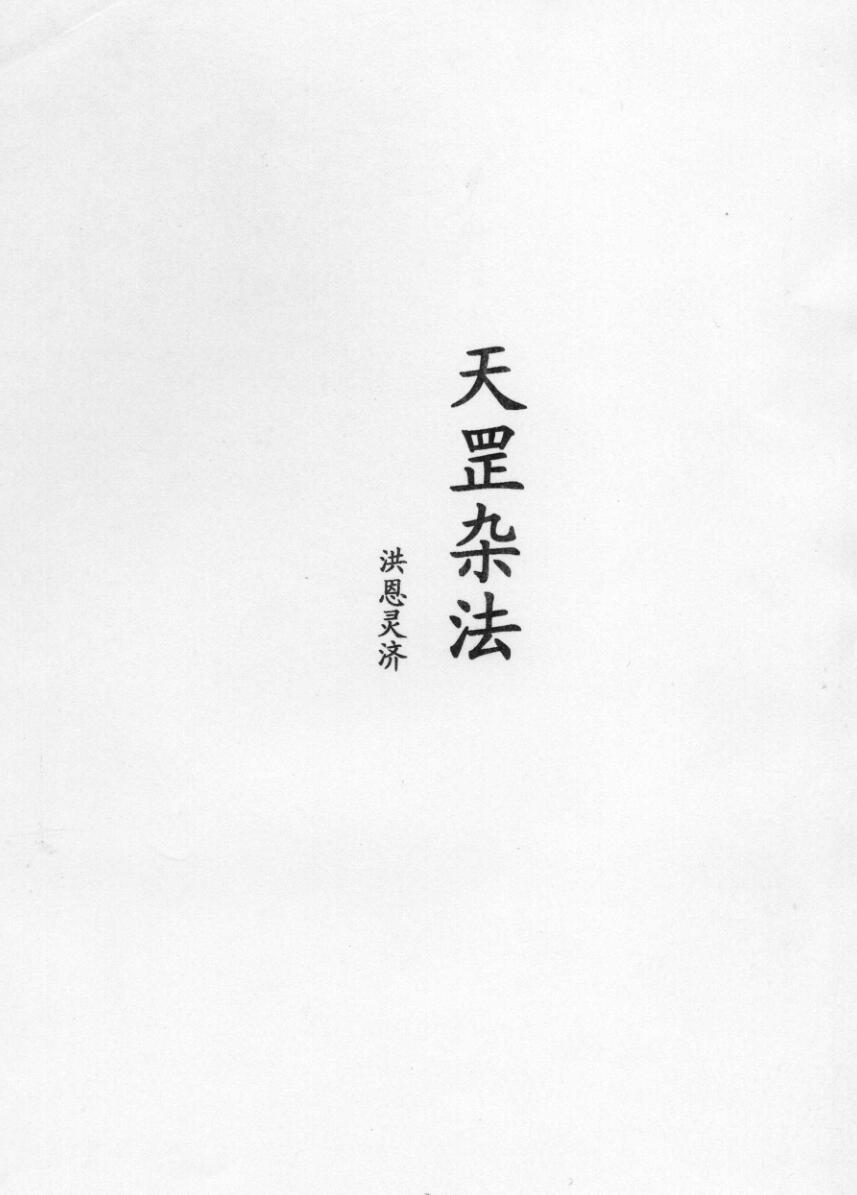 天罡杂法
洪恩灵济